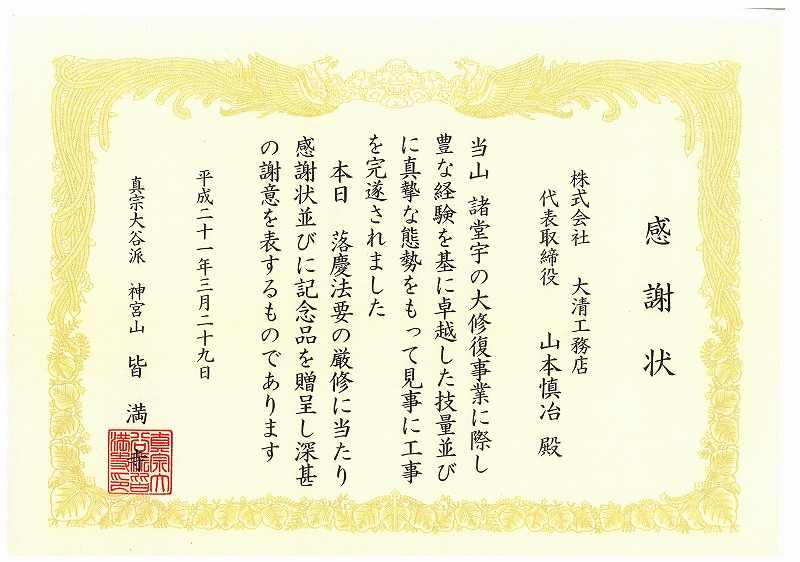 感謝状
株式会社 大清工務店
代表取締役 山本慎冶 殿
当山 諸堂宇の大修復事業に際し
豊な経験を基に卓越した技量並び
に真摯な態勢をもって見事に工事
を完遂されました
本日 落慶法要の厳修に当たり
感謝状並びに記念品を贈呈し深甚
の謝意を表するものであります
平成二十一年三月二十九日
真宗大谷派 神宮山 皆満寺